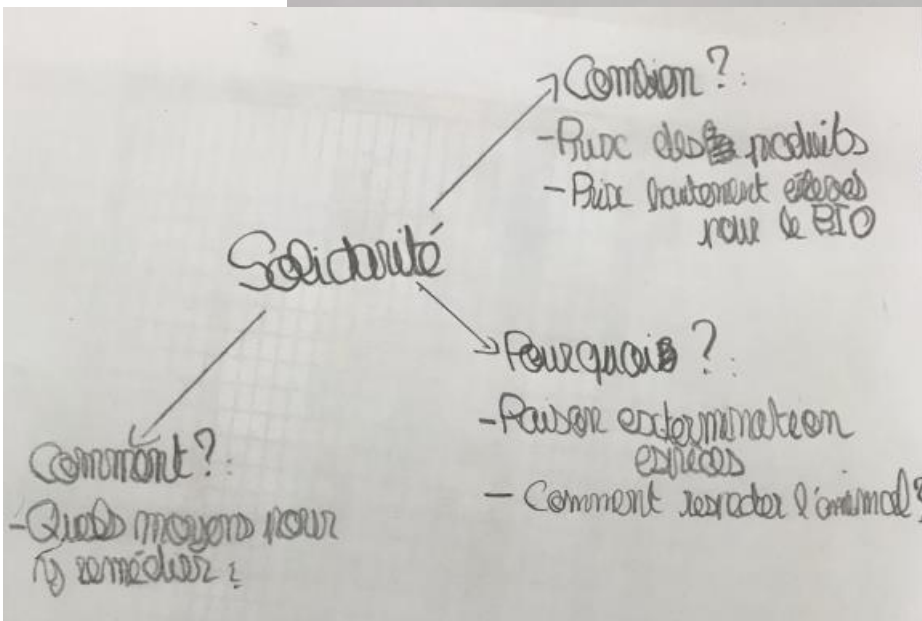 Combien ? :
- Prix des produits
- Prix hautement élevés
pour le BIO
Solidarité
Pourquoi ? :
- Raison extermination
espèces
- Comment respecter l'animal ?
Comment ? :
- Quels moyens pour
y remédier ?